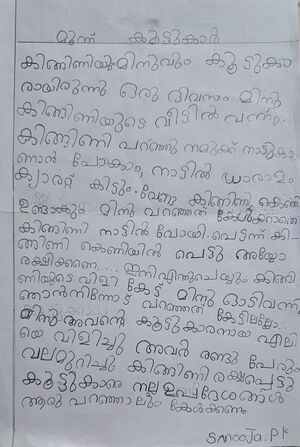 മൂന്ന് കൂട്ടുകാർ
കിങ്ങിണിയും മിനുവും കൂട്ടുക്കാ
രായിരുന്നു ഒരു ദിവസം മിനു
കിങ്ങിണിയുടെ വീട്ടിൽ വന്നു.
കിങ്ങിണി പറഞ്ഞു നമുക്ക് നാടുകാ
ണാൻ പോകാം, നാട്ടിൽ ധാരാളം
ക്യാരറ്റ് കിട്ടും. വേണ്ട കിങ്ങിണി, കെണി
ഉണ്ടാകും മിനു പറഞ്ഞത് കേൾക്കാതെ
കിങ്ങിണി നാട്ടിൽ പോയി. പെട്ടന്ന് കി-
ങ്ങിണി കെണിയിൽ പെട്ടു അയ്യോ
രക്ഷിക്കണെ..... ഇനി എന്തുചെയ്യും കിങ്ങി
ണിയുടെ വിളി കേട്ട് മിനു ഓടിവന്നു
ഞാൻ നിന്നോട് പറഞ്ഞത് കേട്ടില്ലല്ലോ..
മിനു അവന്റെ കൂട്ടുകാരനായ എലി
യെ വിളിച്ചു അവർ രണ്ടു പേരും
വലമുറിച്ചു കിങ്ങിണി രക്ഷപ്പെട്ടു
കൂട്ടുകാരെ നല്ല ഉപദേശങ്ങൾ
ആരു പറഞ്ഞാലും കേൾക്കണം
SMOOJA.P.K